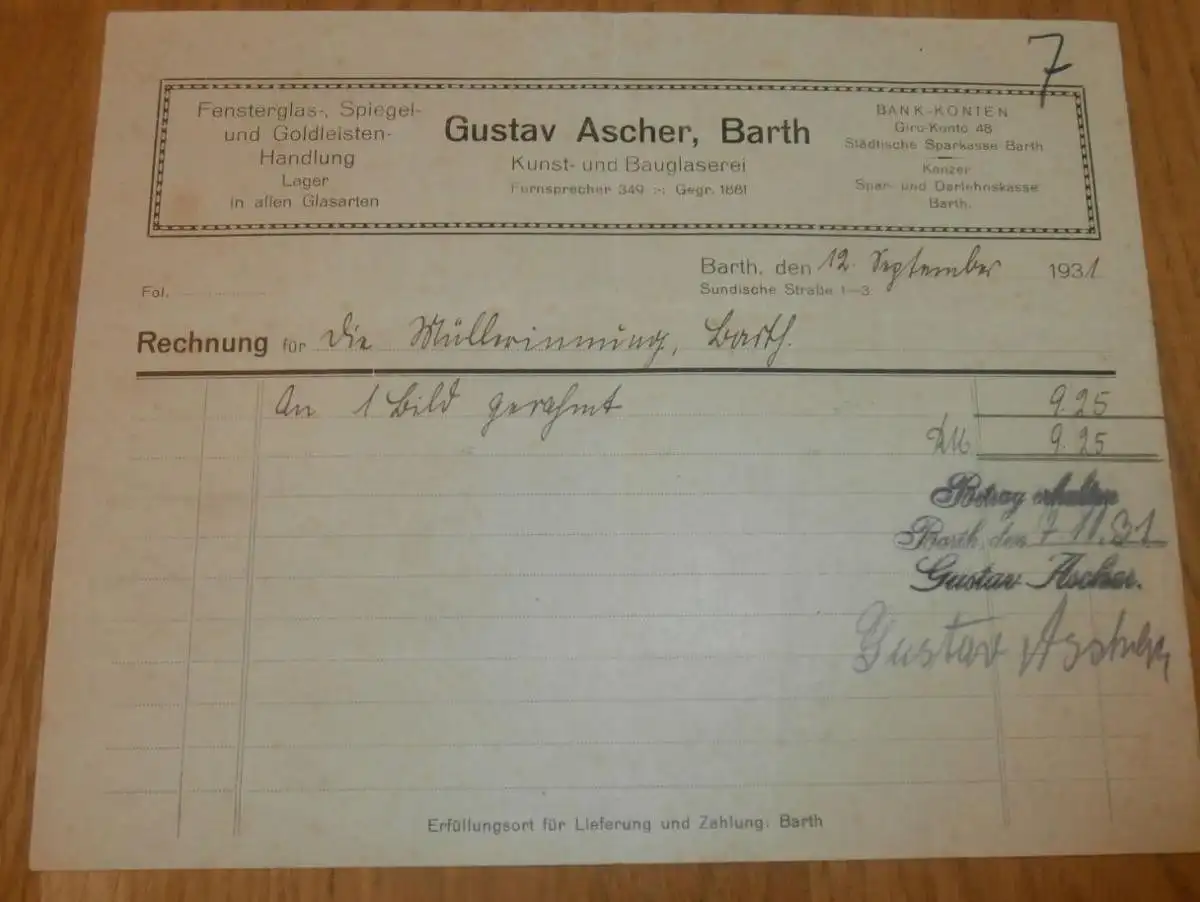 7
Fensterglas-, Spiegel-
und Goldleisten-
Handlung
Lager
in allen Glasarten
Gustav Ascher, Barth
Kunst- und Bauglaserei
Fernsprecher 349 :-: Gegr. 1881
BANK-KONTEN
Giro-Konto 48
Städtische Sparkasse Barth
Konzer
Spar- und Darlehnskasse
Barth.
Barth, den 12. September 1931
Sundische Straße 1-3
Fol.
Rechnung für die Müllerinnung, Barth.
An 1 Bild gerahmt 9.25
RM 9.25
Betrag erhalten
Barth, den 7 11. 31
Gustav Ascher.
Gustav Ascher
Erfüllungsort für Lieferung und Zahlung: Barth